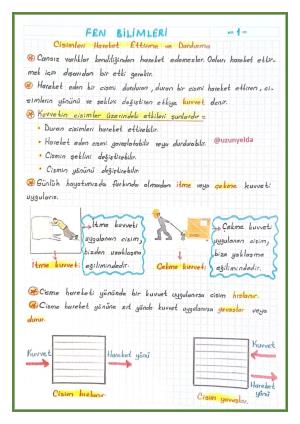 FEN BİLİMLERİ
-1-
Cisimleri Hareket Ettirme ve Durdurma
Cansız varlıklar kendiliğinden hareket edemezler. Onları hareket ettir-
mek için dışarıdan bir etki gerekir.
Hareket eden bir cismi durduran, duran bir cismi hareket ettiren, ci-
simlerin yönünü ve şeklini değiştiren etkiye kuvvet denir.
Kuvvetin cisimler üzerindeki etkileri şunlardır:
• Duran cisimleri hareket ettirebilir.
• Hareket eden cismi yavaşlatabilir veya durdurabilir.
@uzunyelda
• Cismin şeklini değiştirebilir.
• Cismin yönünü değiştirebilir.
Günlük hayatımızda farkında olmadan itme veya çekme kuvveti
uygularız.
İtme kuvveti
uygulanan cisim,
bizden uzaklaşma
eğilimindedir.
İtme kuvveti
Çekme kuvveti
uygulanan cisim,
bize yaklaşma
eğilimindedir.
Çekme kuvveti
Cisme hareketi yönünde bir kuvvet uygulanırsa cisim hızlanır.
Cisme hareket yönüne zıt yönde kuvvet uygulanırsa yavaşlar veya
durur.
Kuvvet
Hareket yönü
Cisim hızlanır.
Kuvvet
Hareket
yönü
Cisim yavaşlar.